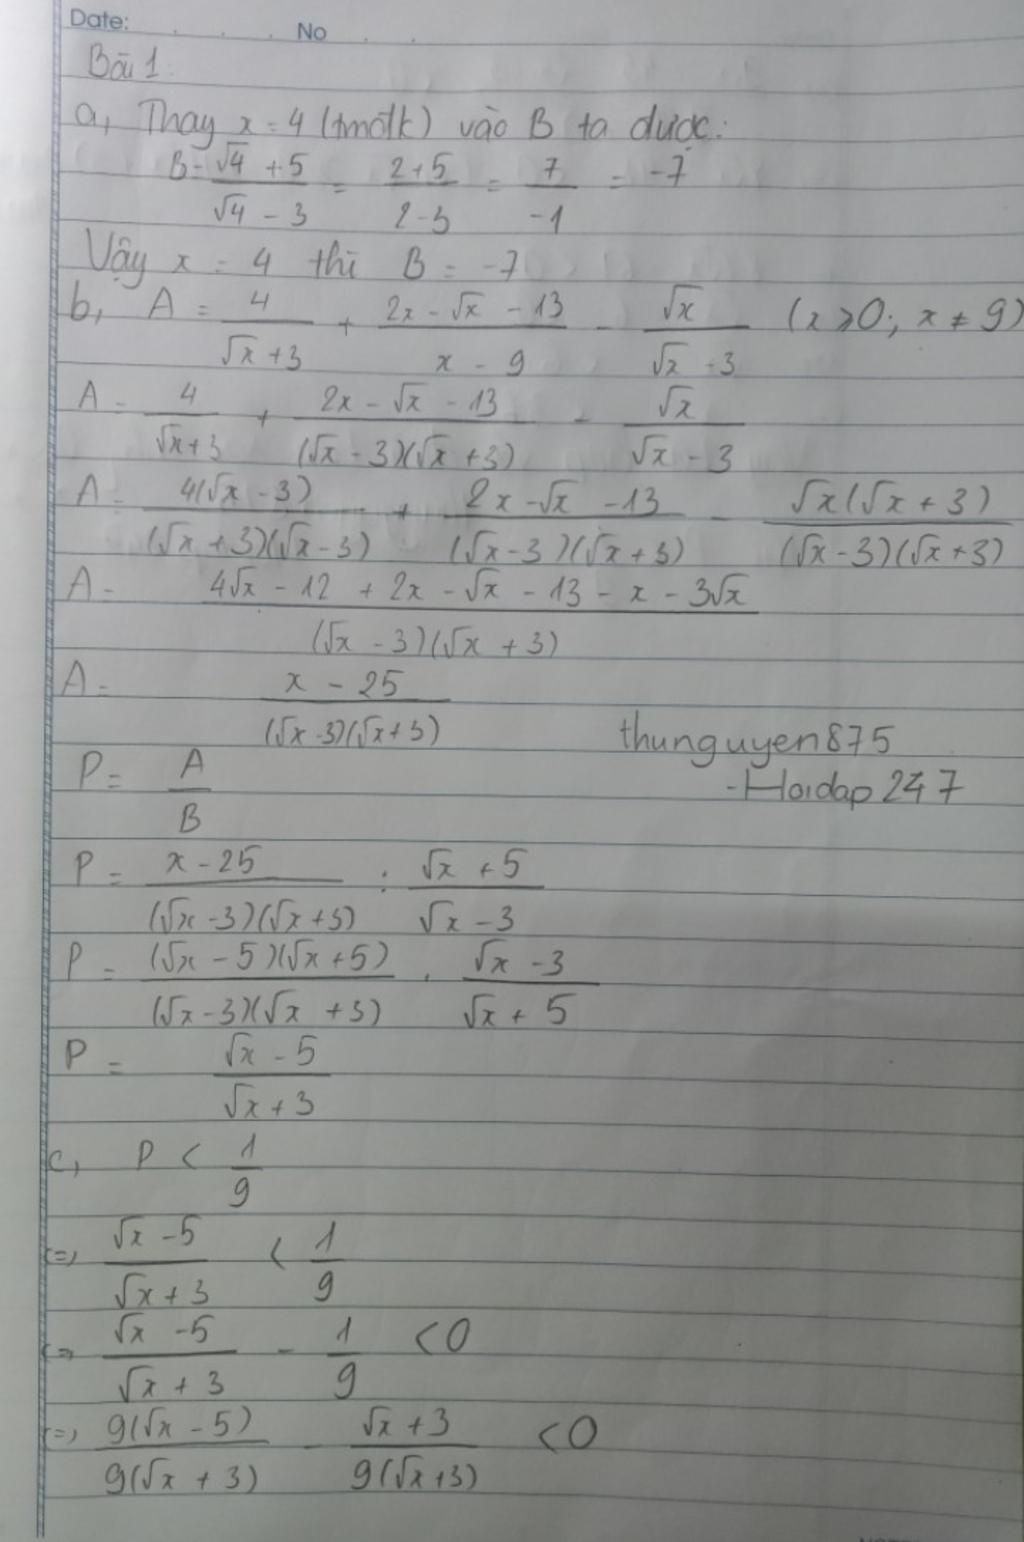 Date: . . . . No . .
Bài 1:
a, Thay x = 4 (tmđk) vào B ta được:
B = (√4 + 5)/(√4 - 3) = (2+5)/(2-3) = 7/(-1) = -7
Vậy x = 4 thì B = -7
b, A = 4/(√x + 3) + (2x - √x - 13)/(x - 9) - √x/(√x - 3) (x ⩾ 0; x ≠ 9)
A = 4/(√x + 3) + (2x - √x - 13)/((√x - 3)(√x + 3)) - √x/(√x - 3)
A = 4(√x - 3)/((√x + 3)(√x - 3)) + (2x - √x - 13)/((√x - 3)(√x + 3)) - √x(√x + 3)/((√x - 3)(√x + 3))
A = (4√x - 12 + 2x - √x - 13 - x - 3√x)/((√x - 3)(√x + 3))
A = (x - 25)/((√x - 3)(√x + 3))
thunguyen875
- Hoidap247
P = A/B
P = (x - 25)/((√x - 3)(√x + 3)) : (√x + 5)/(√x - 3)
P = (√x - 5)(√x + 5)/((√x - 3)(√x + 3)) . (√x - 3)/(√x + 5)
P = (√x - 5)/(√x + 3)
c, P < 1/9
(=) (√x - 5)/(√x + 3) < 1/9
(=) (√x - 5)/(√x + 3) - 1/9 < 0
(=) 9(√x - 5)/(9(√x + 3)) - (√x + 3)/(9(√x + 3)) < 0